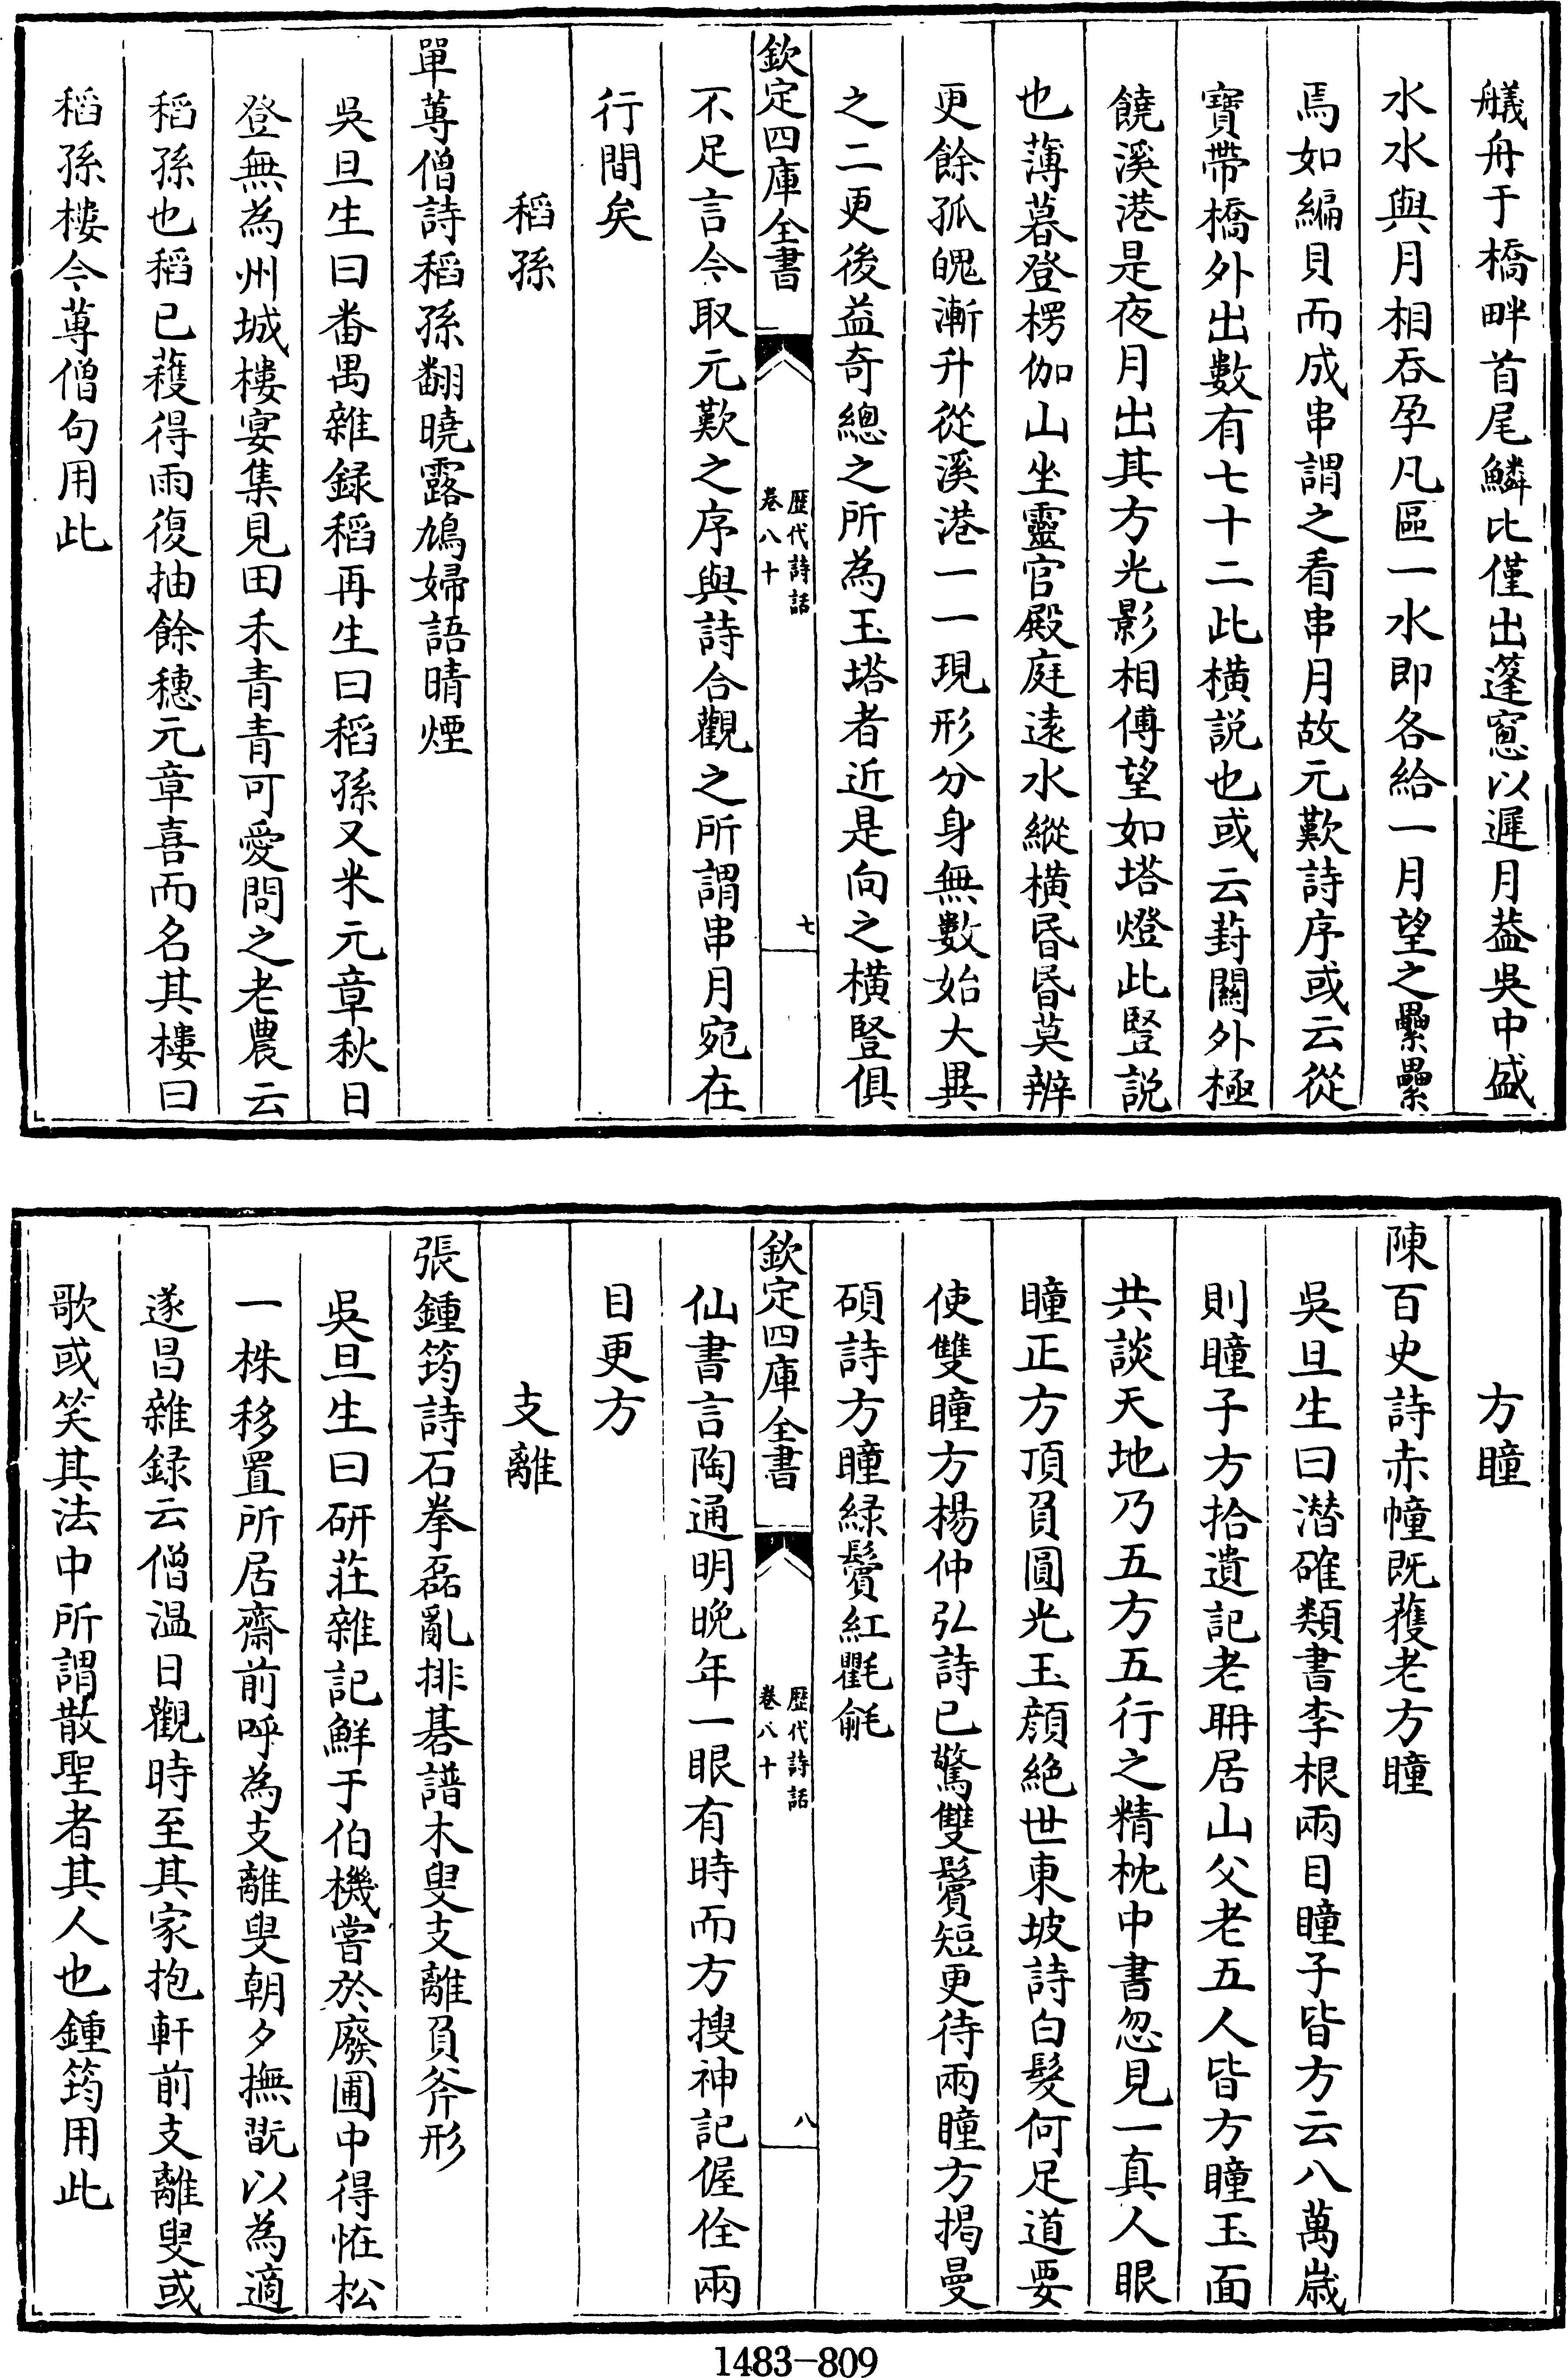 艤舟于橋畔首尾鱗比僅出蓬窓以遲月葢吳中盛
水水與月相吞孕凡區一水即各給一月望之纍纍
焉如編貝而成串謂之看串月故元歎詩序或云從
寶帶橋外出數有七十二此橫説也或云葑關外極
饒溪港是夜月出其方光影相傅望如塔燈此竪説
也薄暮登楞伽山坐靈官殿庭逺水縱橫昏昏莫辨
更餘孤魄漸升從溪港一一現形分身無數始大異
之二更後益奇總之所為玉塔者近是向之橫豎俱
欽定四庫全書
歴代詩話
卷八十
七
不足言今取元歎之序與詩合觀之所謂串月宛在
行間矣
稻孫
單蓴僧詩稻孫翻曉露鳩婦語晴煙
吳旦生曰番禺雜録稻再生曰稻孫又米元章秋日
登無為州城樓宴集見田禾青青可愛問之老農云
稻孫也稻已穫得雨復抽餘穗元章喜而名其樓曰
稻孫樓今蓴僧句用此
方瞳
陳百史詩赤幢既䕶老方瞳
吳旦生曰潛確類書李根兩目瞳子皆方云八萬歳
則瞳子方拾遺記老聃居山父老五人皆方瞳玉面
共談天地乃五方五行之精枕中書忽見一真人眼
瞳正方頂負圓光玉顔絶世東坡詩白髮何足道要
使雙瞳方楊仲弘詩已驚雙鬢短更待兩瞳方揭曼
碩詩方瞳緑鬢紅氍毹
欽定四庫全書
歴代詩話
卷八十
八
仙書言陶通明晚年一眼有時而方搜神記偓佺兩
目更方
支離
張鍾筠詩石拳磊亂排碁譜木叟支離負斧形
吳旦生曰研莊雜記鮮于伯機嘗於廢圃中得恠松
一株移置所居齋前呼為支離叟朝夕撫翫以為適
遂昌雜録云僧温日觀時至其家抱軒前支離叟或
歌或笑其法中所謂散聖者其人也鍾筠用此
1483-809